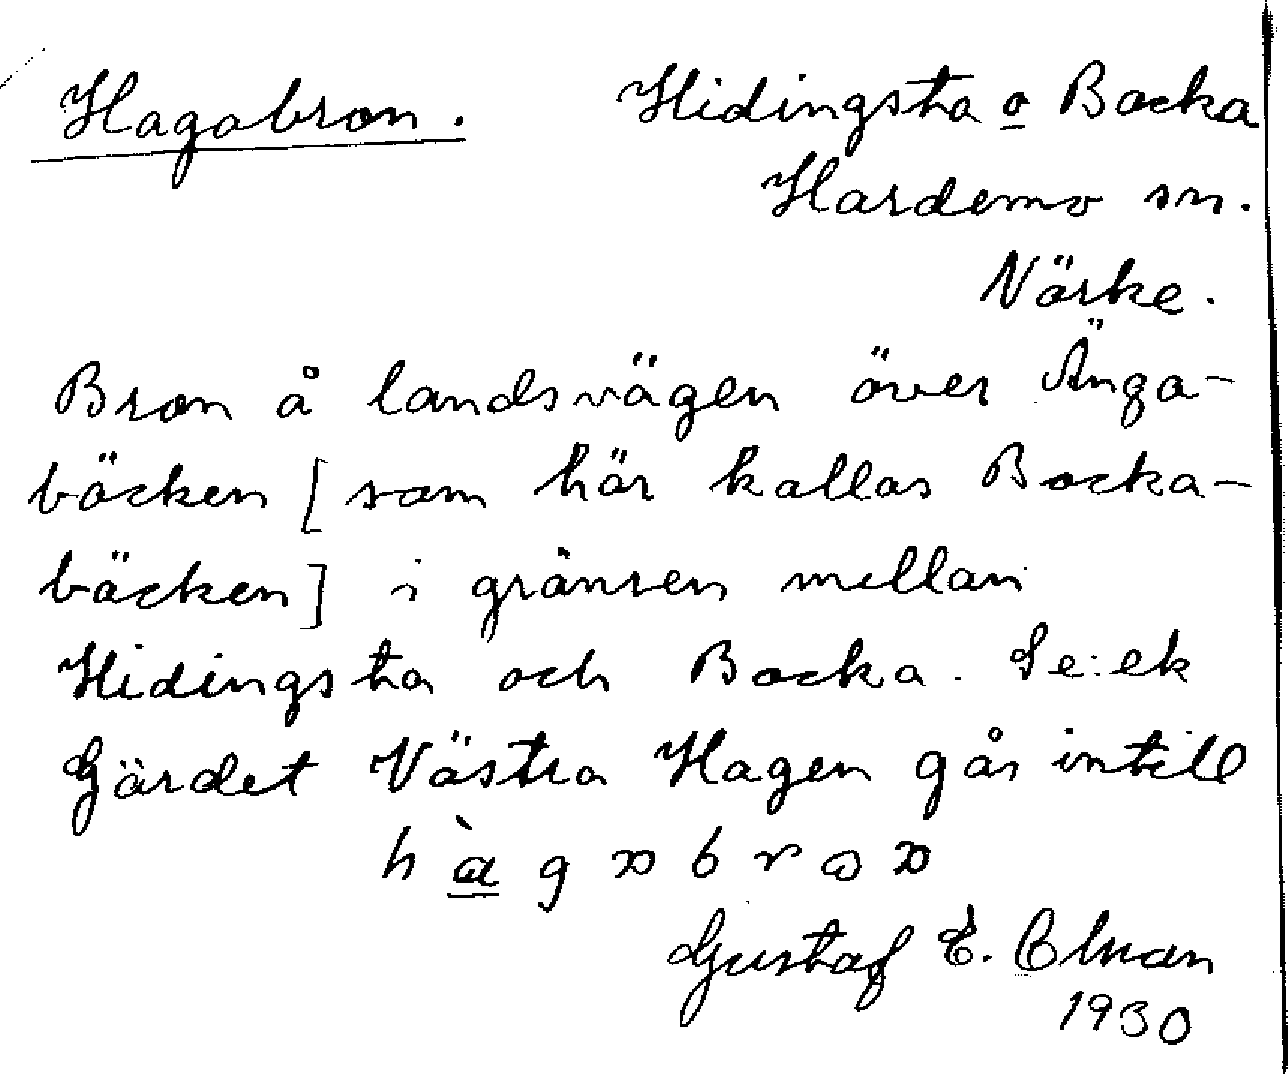 Hagabron. Hidingsta o Bocka
Hardemo sn.
Närke.
Bron å landsvägen över Änga-
bäcken [som här kallas Bocka-
bäcken] i gränsen mellan
Hidingsta och Bocka. Se: ek
Gärdet Västra Hagen går intill
Gustaf E.
1930